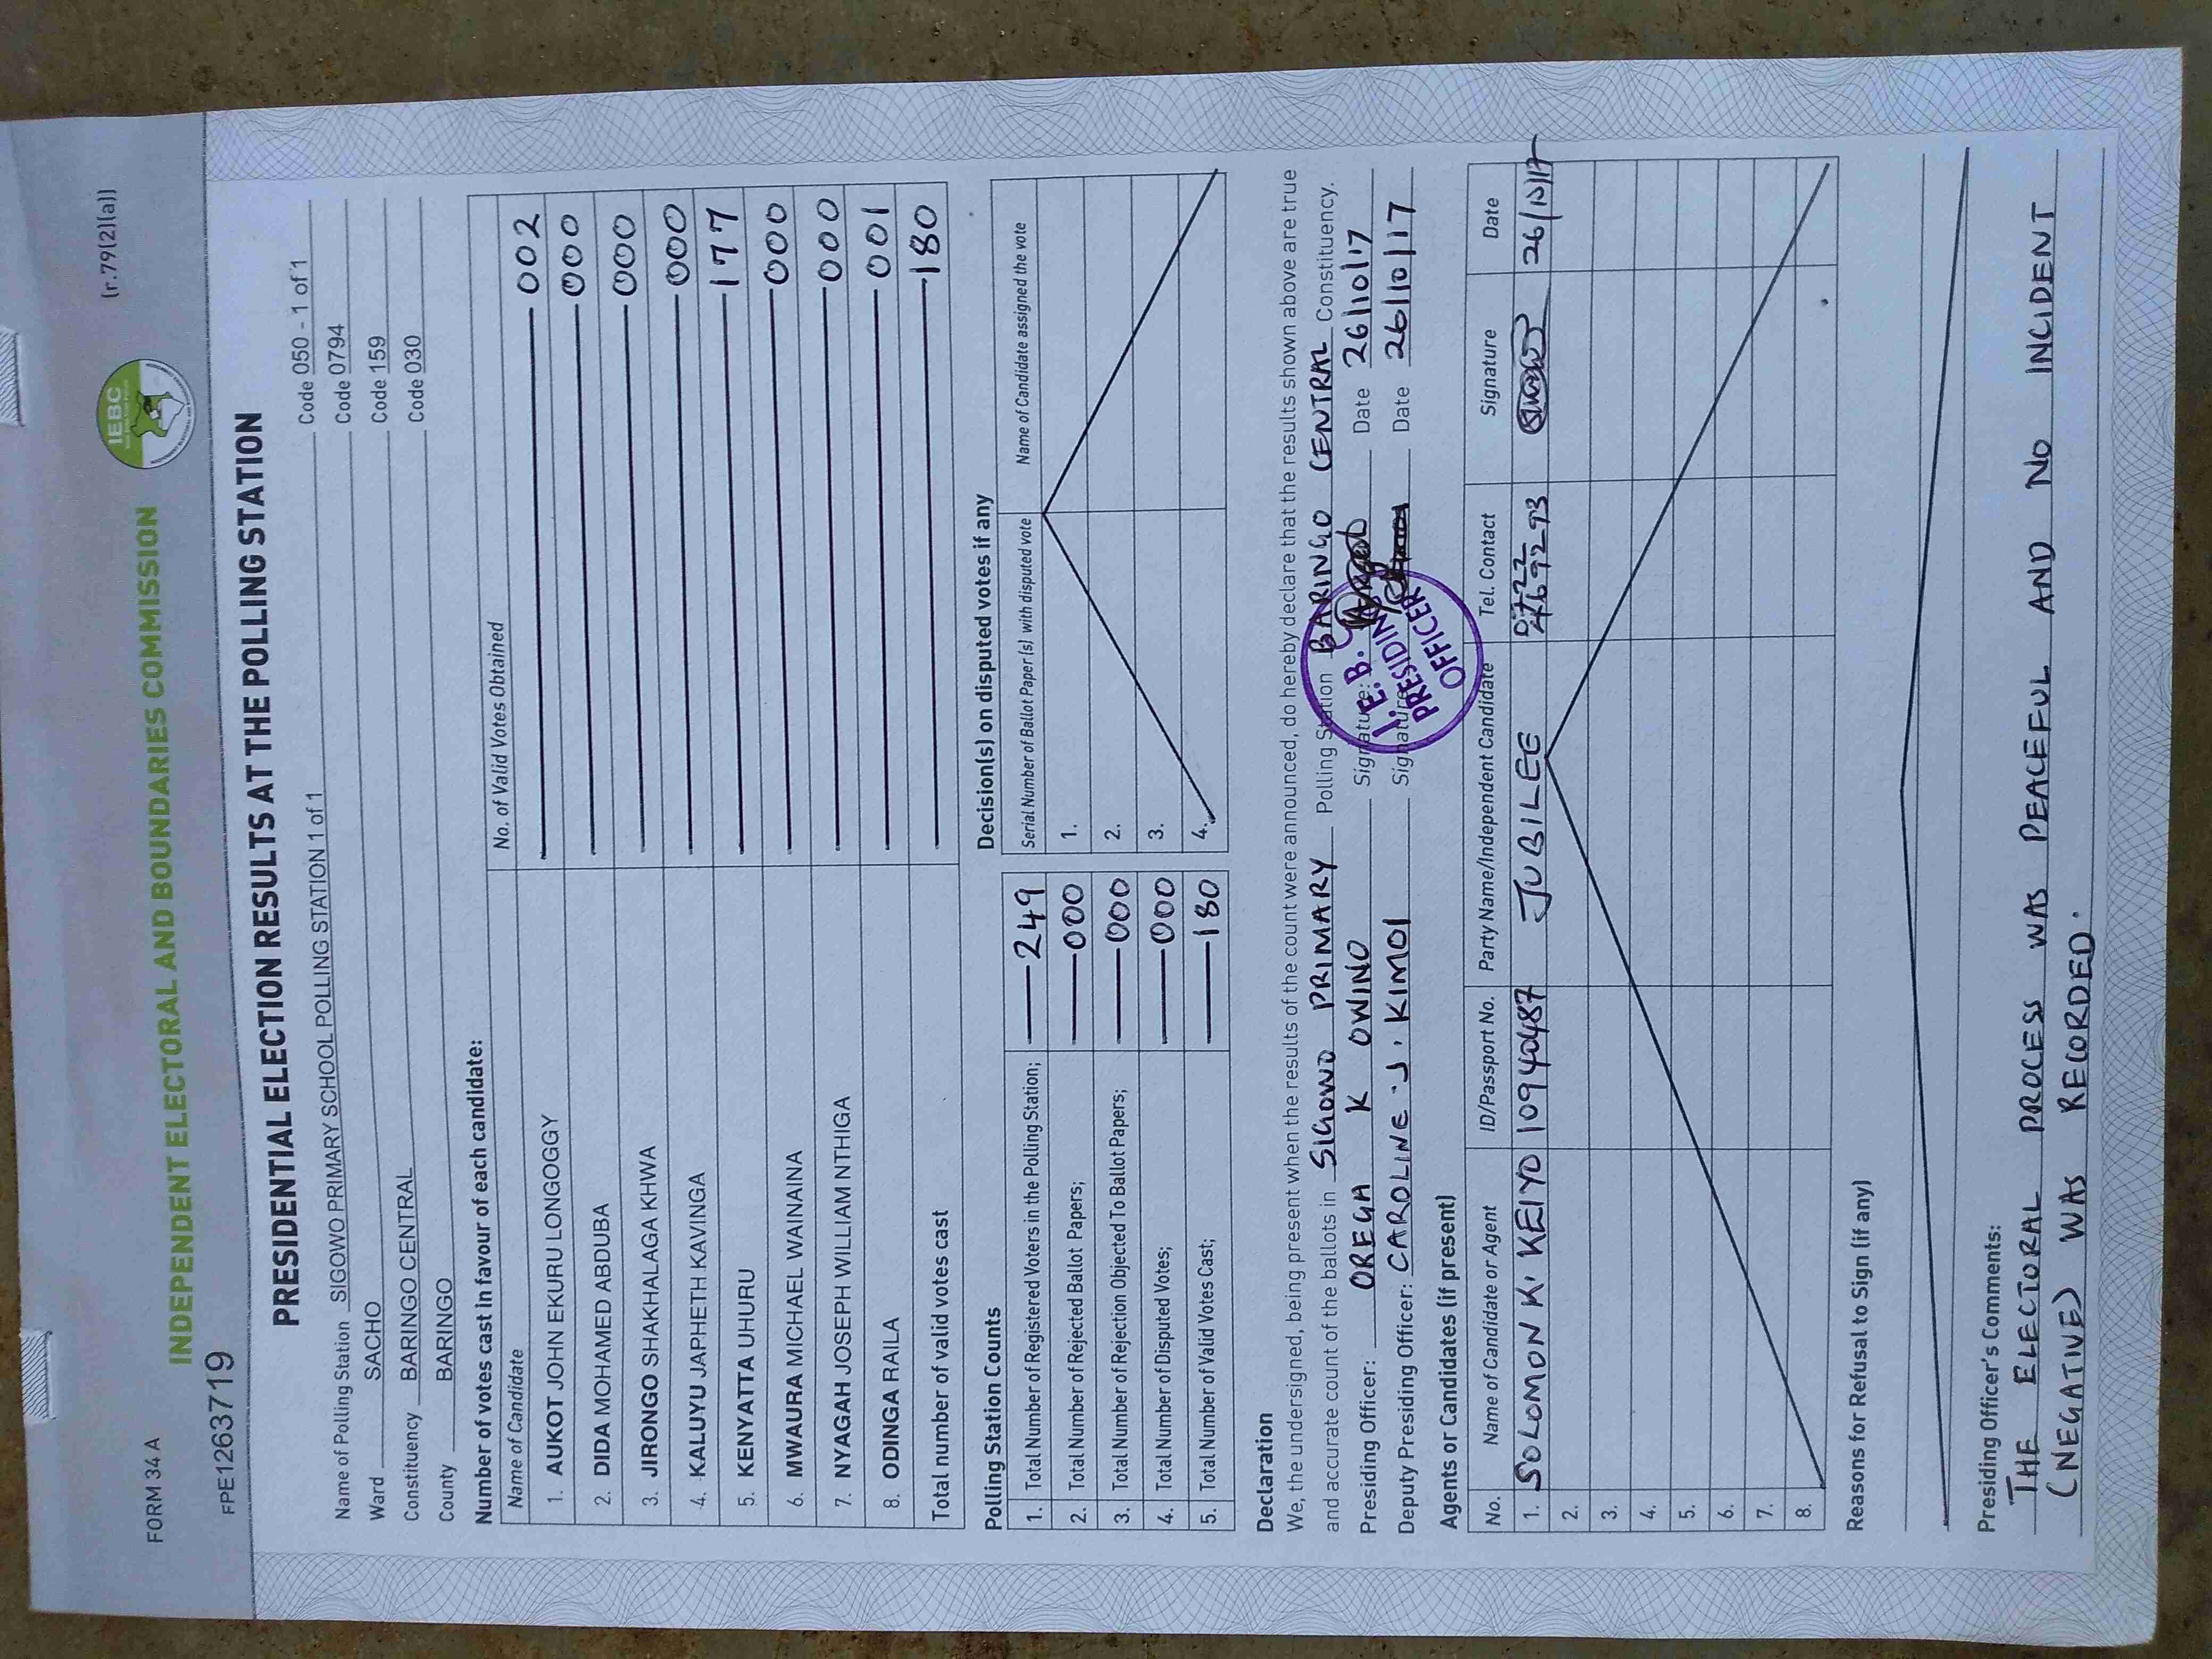 FORM 34 A
(r.79(2)(a))
IEBC
INDEPENDENT ELECTORAL AND BOUNDARIES COMMISSION
FPE1263719
PRESIDENTIAL ELECTION RESULTS AT THE POLLING STATION
Name of Polling Station SIGOWO PRIMARY SCHOOL POLLING STATION 1 of 1 Code 050 - 1 of 1
Ward SACHO Code 0794
Constituency BARINGO CENTRAL Code 159
County BARINGO Code 030
Number of votes cast in favour of each candidate:
Name of Candidate No. of Valid Votes Obtained
1. AUKOT JOHN EKURU LONGOGGY 002
2. DIDA MOHAMED ABDUBA 000
3. JIRONGO SHAKHALAGA KHWA 000
4. KALUYU JAPHETH KAVINGA 000
5. KENYATTA UHURU 177
6. MWAURA MICHAEL WAINAINA 000
7. NYAGAH JOSEPH WILLIAM NTHIGA 000
8. ODINGA RAILA 001
Total number of valid votes cast 180
Polling Station Counts
1. Total Number of Registered Voters in the Polling Station; 249
2. Total Number of Rejected Ballot Papers; 000
3. Total Number of Rejection Objected To Ballot Papers; 000
4. Total Number of Disputed Votes; 000
5. Total Number of Valid Votes Cast; 180
Decision(s) on disputed votes if any
Serial Number of Ballot Paper (s) with disputed vote Name of Candidate assigned the vote
1.
2.
3.
4.
Declaration
We, the undersigned, being present when the results of the count were announced, do hereby declare that the results shown above are true
and accurate count of the ballots in SIGOWO PRIMARY Polling Station BARINGO CENTRAL Constituency.
Presiding Officer: OREGA K OWINO Signature: Date 26/10/17
Deputy Presiding Officer: CAROLINE J. KIMOI Signature: Date 26/10/17
I.E.B.C
PRESIDING
OFFICER
Agents or Candidates (if present)
No. Name of Candidate or Agent ID/Passport No. Party Name/Independent Candidate Tel. Contact Signature Date
1. SOLOMON K. KEIYO 10940487 JUBILEE 0722 469293 26/10/17
2.
3.
4.
5.
6.
7.
8.
Reasons for Refusal to Sign (if any)
Presiding Officer's Comments:
THE ELECTORAL PROCESS WAS PEACEFUL AND NO INCIDENT
(NEGATIVE) WAS RECORDED.